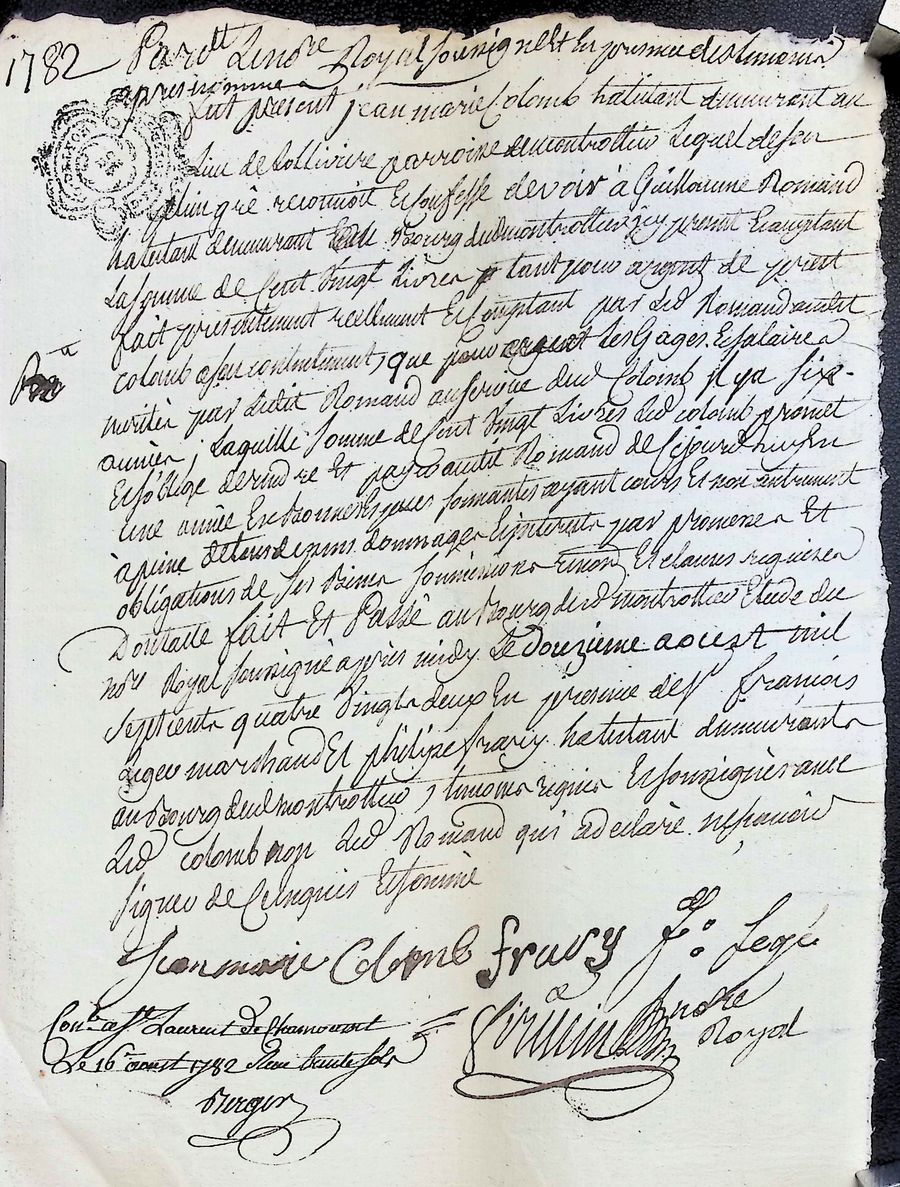 1782
Pardt Le nore Royal soussigné Et En presence des temoins
apres nommés
fut present jean marie Colomb habitant demeurant au
lieu de Lolliviere parroisse de montrottier Lequel de son
plein gré reconnoit Et Confesse devoir à Guillaume Romand
habitant demeurant Bourg dud montrottier jcy present Et acceptant
La somme de Cent Vingt Livres tant pour argent de prest
fait presentement reellement Et Comptant par Led Romand audit
colomb a son contentement, que pour Les Gages Et salaires
merités par Ledit Romand au service dud Colomb il ya six
années ; Laquelle somme de Cent Vingt Livres Led colomb promet
Et s'oblige de rendre Et payer audit Romand de Cejourdhuy En
une année En Bonnes Especes sonnantes ayant cours Et non autrement
à peine de tous depens dommages Et interets par promesses Et
obligations de ses Biens soumissions renon Et clauses requises
Dont acte fait Et Passé au Bourg dud montrottier Etude du
nore Royal soussigné apres midy Le douzieme aoust mil
sept cents quatre Vingts deux En presence de sr francois
Leger marchand Et philipe fravy habitant demeurants
au Bourg dud montrottier, temoins requis Et soussignés avec
Led colomb non Led Romand qui a declaré ne sçavoir
signer de Ce Enquis Et sommé
Jean marie Colomb fravy Legé
nore
Royal
Conlé a St Laurent de Chamousset
Le 16 aoust 1782 Reçu trente sols
Berger